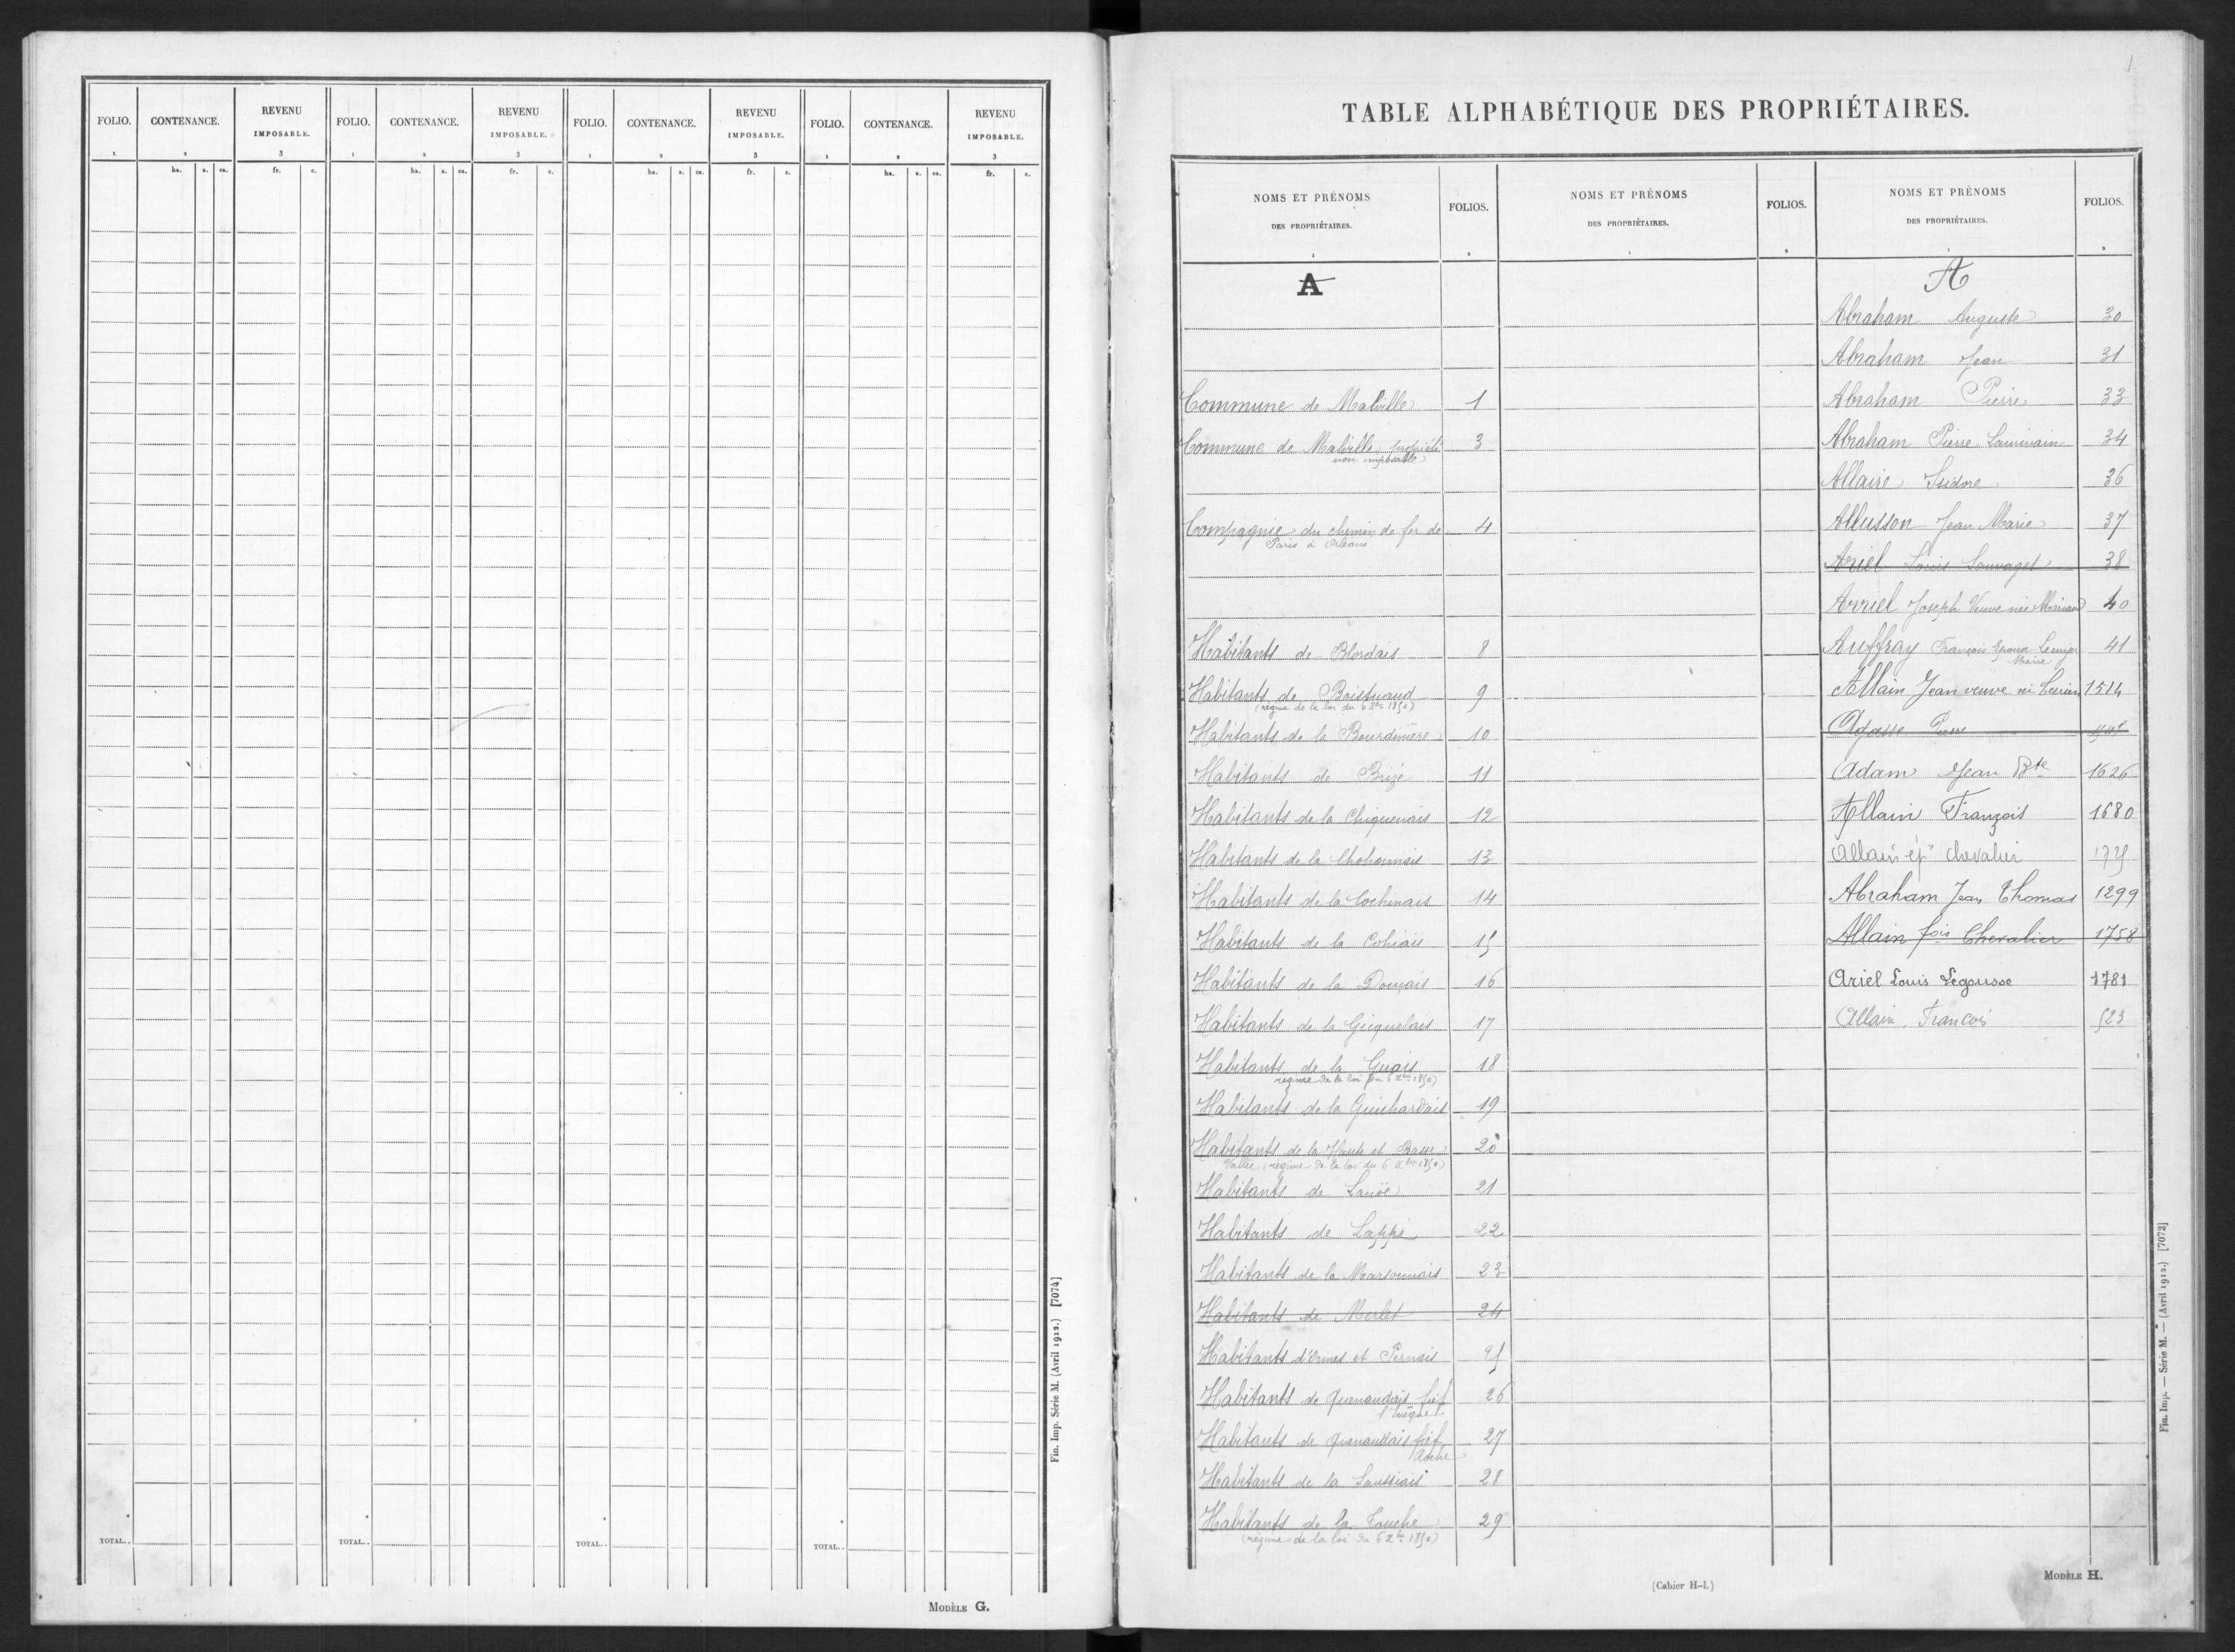 FOLIO. CONTENANCE. REVENU IMPOSABLE. FOLIO. CONTENANCE. REVENU IMPOSABLE. FOLIO. CONTENANCE. REVENU IMPOSABLE. FOLIO. CONTENANCE. REVENU IMPOSABLE.
1 2 3 1 2 3 1 2 3 1 2 3
ha. a. ca. fr. c. ha. a. ca. fr. c. ha. a. ca. fr. c. ha. a. ca. fr. c.
TOTAL.. TOTAL.. TOTAL.. TOTAL..
Fin. Imp. Série M. (Avril 1912.) [7074]
MODÈLE G.
1
TABLE ALPHABÉTIQUE DES PROPRIÉTAIRES.
NOMS ET PRÉNOMS
DES PROPRIÉTAIRES.
FOLIOS.
1 2
A
Commune de Malville 1
Commune de Malville propriété 3
non imposable
Compagnie du chemin de fer de 4
Paris à Orléans
Habitants de Blordais 8
Habitants de 9
(régime de la loi du 6 Xbre 1850)
Habitants de la Bourdinière 10
Habitants de Brizé 11
Habitants de la Chiquenais 12
Habitants de la Chohonnais 13
Habitants de la Cochinais 14
Habitants de la Cohiais 15
Habitants de la 16
Habitants de la Gicquelais 17
Habitants de la Guais 18
régime de la loi du 6 Xbre 1850)
Habitants de la Guichardais 19
Habitants de la Haute et Basse 20
Vallée (régime de la loi du 6 Xbre 1850)
Habitants de Lanöe 21
Habitants de Lappé 22
Habitants de la Marsonnais 23
Habitants de Merlet 24
Habitants d'Ormes et Pernais 25
Habitants de Quenaudais fief 26
l'évêque
Habitants de Quenaudais fief 27
Habitants de la Saussiais 28
Habitants de la Touche 29
(régime de la loi du 6 Xbre 1850)
NOMS ET PRÉNOMS
DES PROPRIÉTAIRES.
FOLIOS.
1 2
NOMS ET PRÉNOMS
DES PROPRIÉTAIRES.
FOLIOS.
1 2
A
Abraham Auguste 30
Abraham Jean 31
Abraham Pierre 33
Abraham Pierre 34
Allaire Isidore 36
Allusson Jean Marie 37
Ariel Louis Sauvaget 38
Arriel Joseph Veuve née 40
Auffray François époux 41
Marie
Allain Jean veuve née 1514
Agasse Pierre
Adam Jean Bte 1626
Allain François 1680
Allain ép Chevalier
Abraham Jean Thomas 1299
Allain fois Chevalier 1758
Ariel Louis Legousse 1781
Allain François 523
Fin. Imp. — Série M. — (Avril 1912.) [7072]
(Cahier H-I.)
MODÈLE H.